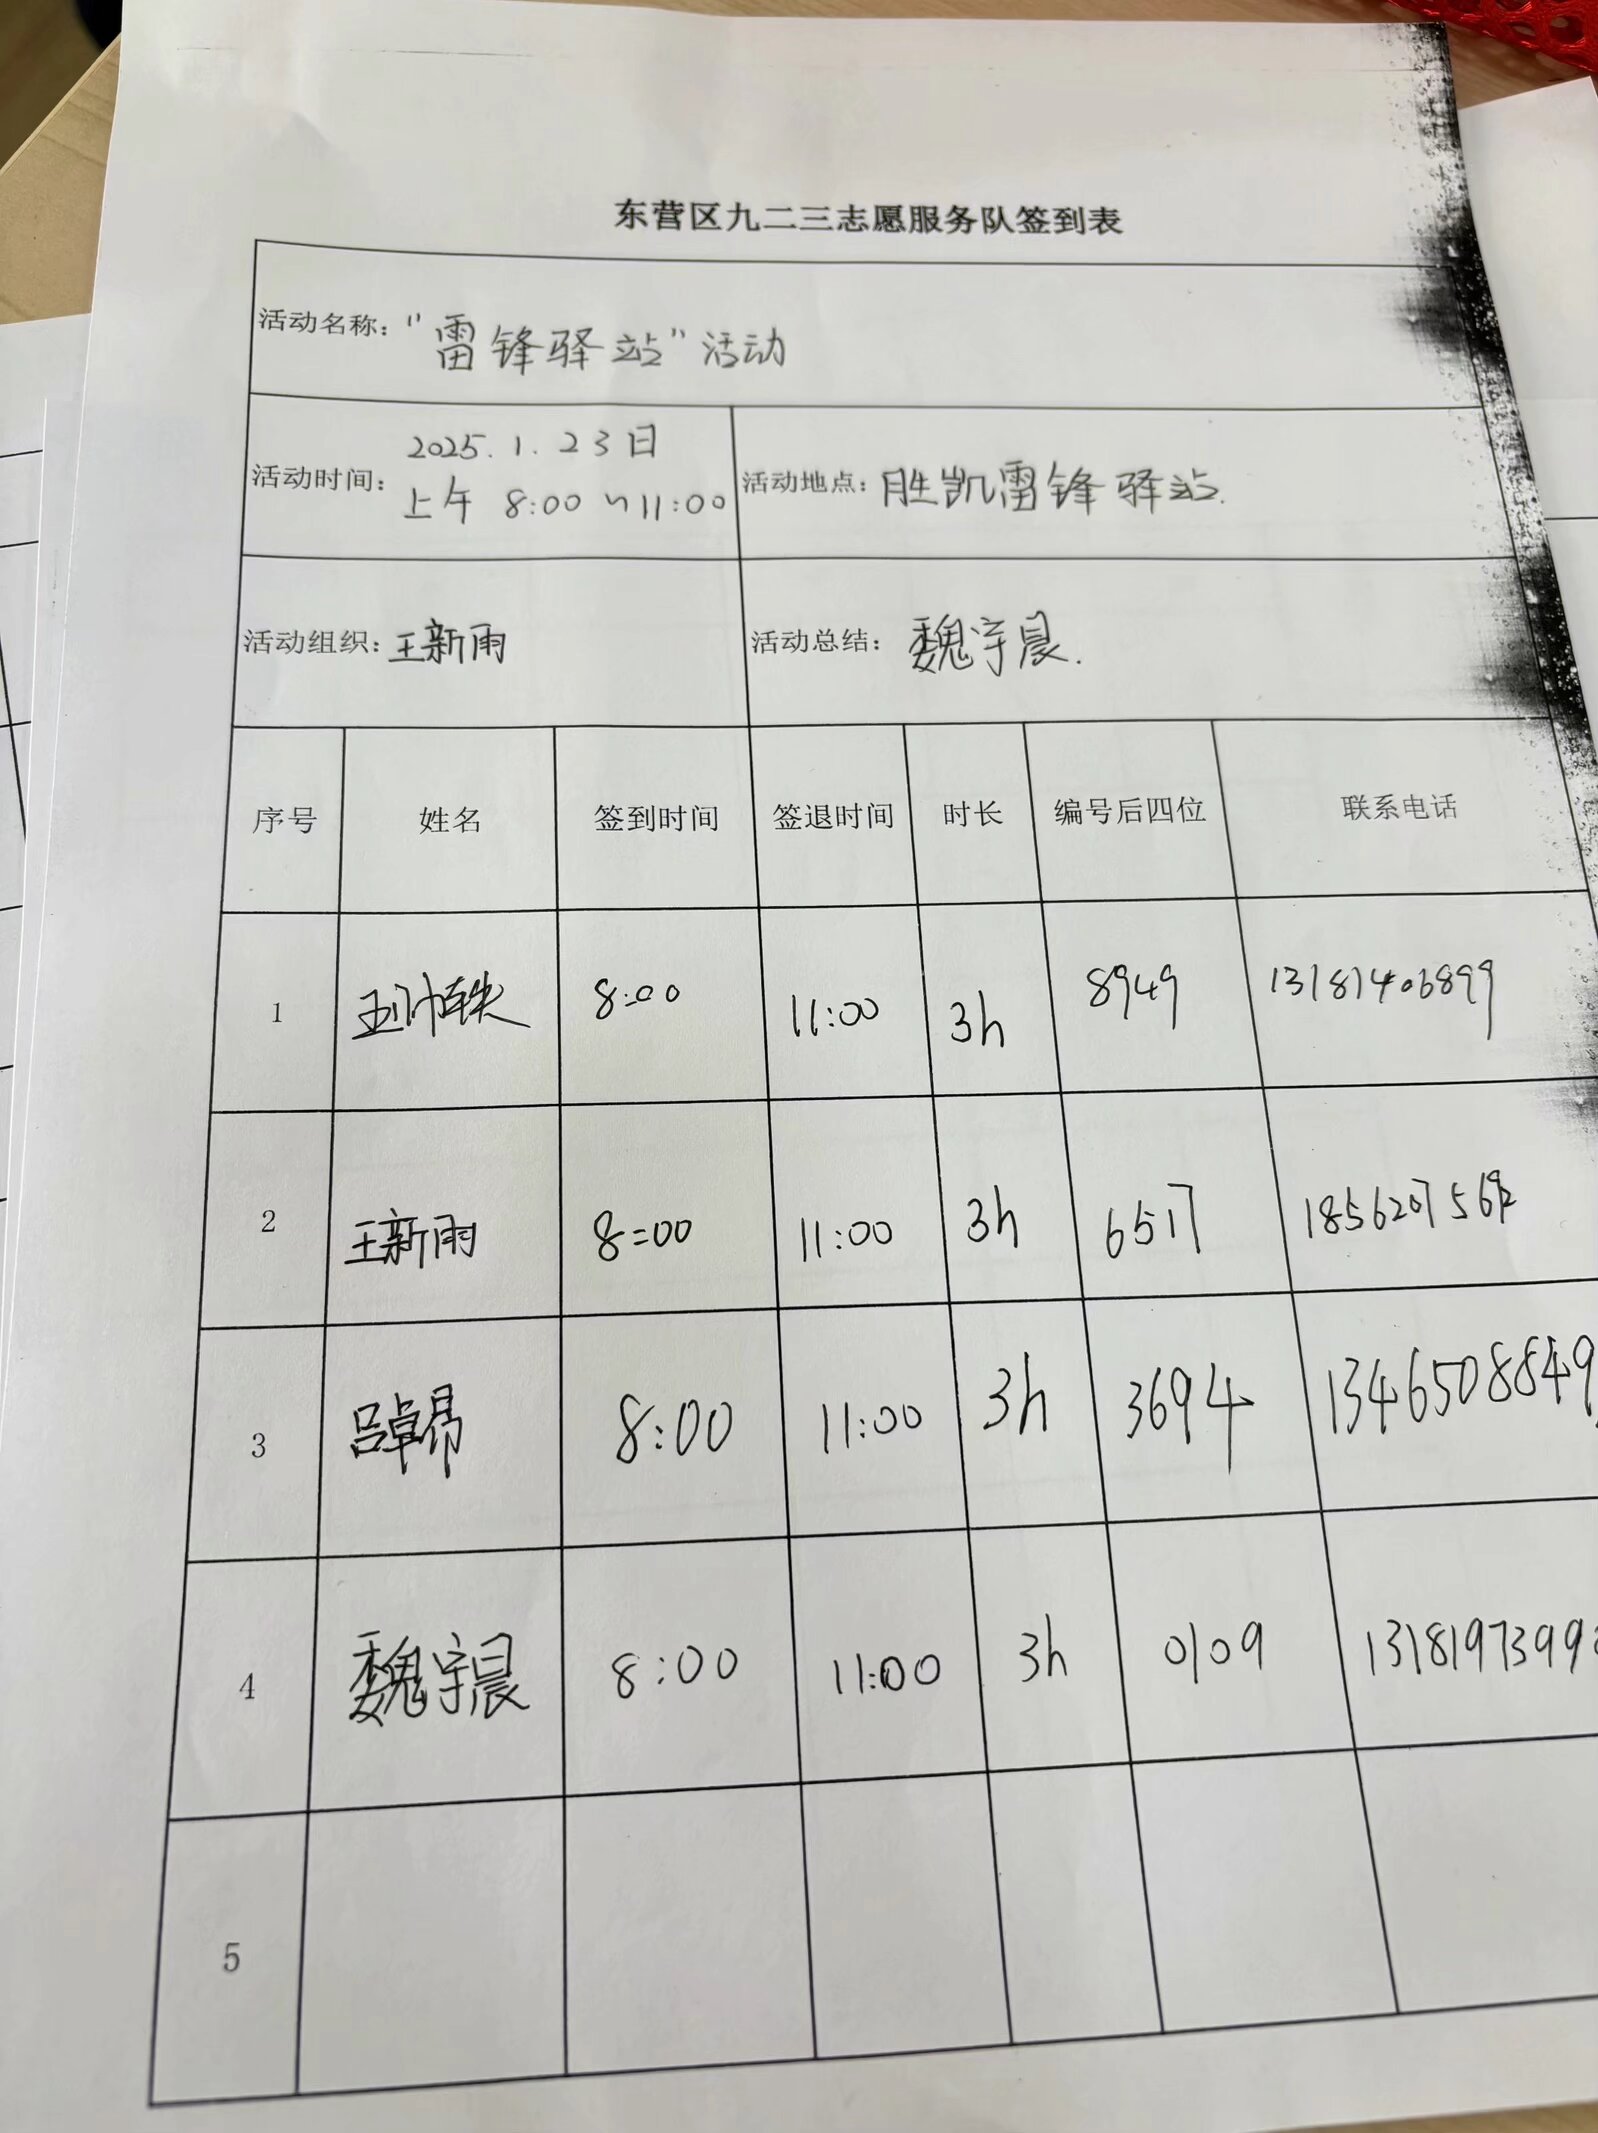 东营区九二三志愿服务队签到表
活动名称："雷锋驿站"活动
活动时间：2025.1.23日
上午 8:00~11:00
活动地点：胜凯雷锋驿站.
活动组织：王新雨
活动总结：魏宇晨.
序号 姓名 签到时间 签退时间 时长 编号后四位 联系电话
1 8:00 11:00 3h 8949 13181406899
2 王新雨 8:00 11:00 3h 6517
3 吕卓昂 8:00 11:00 3h 3694 1346508849
4 魏宇晨 8:00 11:00 3h 0109 1318197399
5